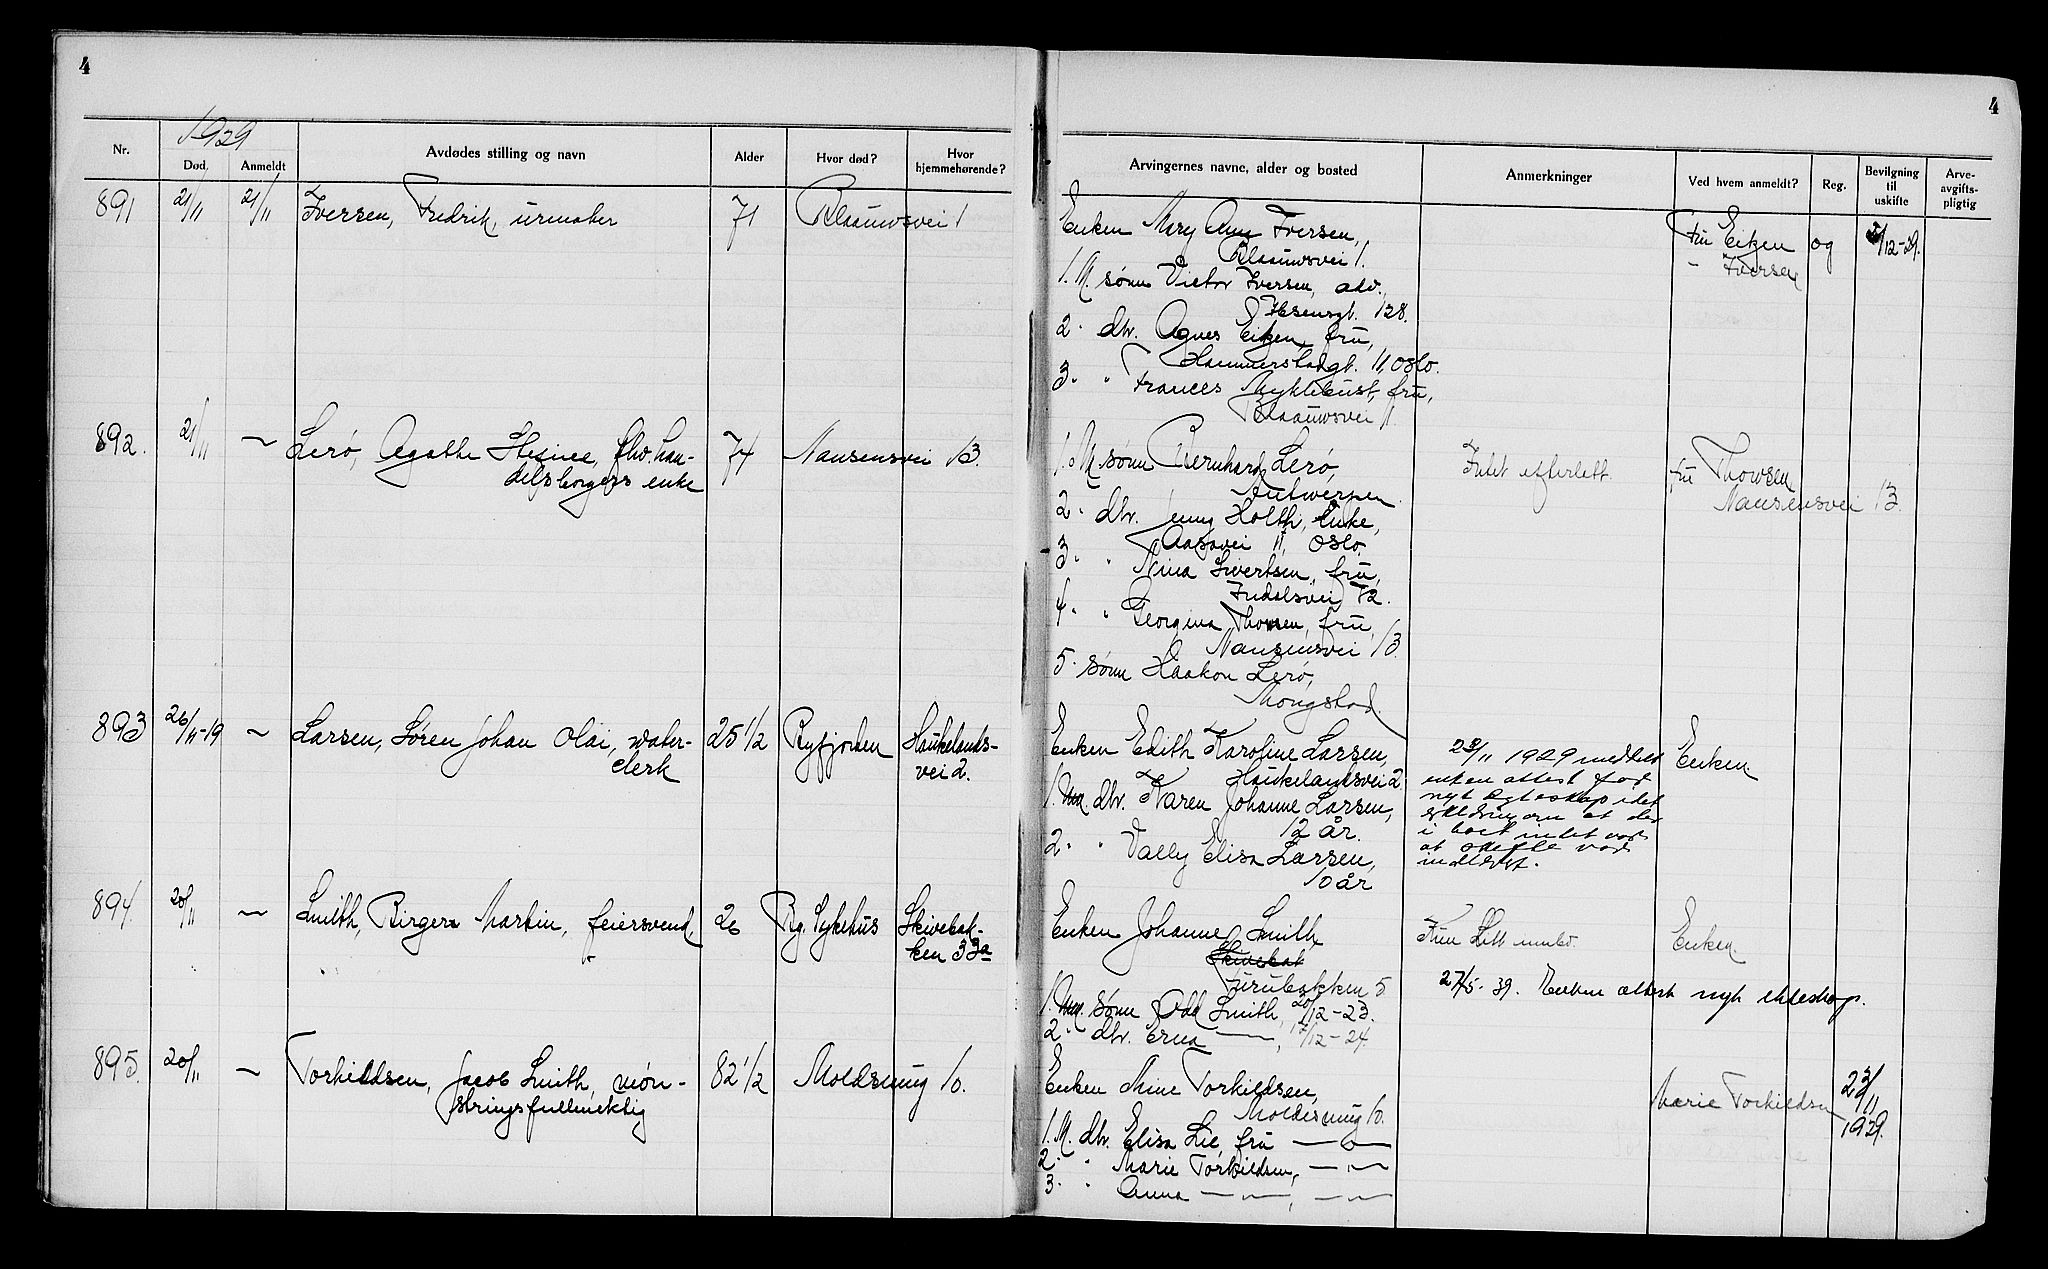 4
4
1929
Nr.
Død.
Anmeldt
Avdødes stilling og navn
Alder
Hvor død?
Hvor
hjemmehørende?
Arvingernes navne, alder og bosted
Anmerkninger
Ved hvem anmeldt?
Reg.
Bevilgning
til
uskifte
Arve-
avgifts-
pligtig
891 21/11 21/11 Iversen, Fredrik, urmaker 71 Blaauwsvei 1
Enken Mary Ann Iversen,
Blaauwsvei 1.
1. M. sønn Victor Iversen, adv.,
Ibsensgt. 128.
2. dtr. Agnes Eiken, fru,
Hammerstadgt. 11, Oslo.
3. " Frances Myklebust, fru,
Blaauwsvei 1.
Fru Eiken og
" Iversen
/12-29.
892. 21/11 — Lerø, Agathe, fhv. han-
delsborgers enke
74 Nansensvei 13.
1. M sønn Bernhard Lerø,
Antwerpen
2. dtr. Jenny Holth, Enke,
Aasavei 11, Oslo.
3. " Nina Sivertsen, fru,
Indalsvei 72.
4. " Georgina Thowsen, fru,
Nansensvei 13.
5. sønn Haakon Lerø,
Mongstad.
Intet efterlatt.
fru Thowsen
Nansensvei 13.
893 26/11-19 — Larsen, Søren Johan Olai, water-
clerk
25 1/2 Byfjorden Haukelands-
vei 2.
Enken Edith Karoline Larsen,
Haukelandsvei 2.
1. Um. dtr. Karen Johanne Larsen,
12 år.
2. " Vally Elisa Larsen,
10 år
/11 1929 meddelt
enken attest for
nyt egteskap idet
at der
i boet intet var
at skifte
Enken.
894. 20/11 — Smith, Birger Martin, feiersvend, 26 Bg. Sykehus Skivebak-
ken 33a
Enken Johanne Smith,
Skivebak
Furubakken 5
1. Um. sønn Odd Smith, 20/12-23.
2. dtr. Erna — " —, 17/12-24.
Enken.
27/5-39. Enken attest nyt ekteskap.
895. 20/11 — Torkildsen, Jacob Smith, møn-
stringsfullmektig
82 1/2 Moldesmug 10.
Enken Mine Torkildsen,
Moldesmug 10.
1. M. dtr. Elisa Lie, fru — " —
2. " Marie Torkildsen, — " —
3. " Anna — " —, — " —
Marie Torkildsen
23/11
1929.